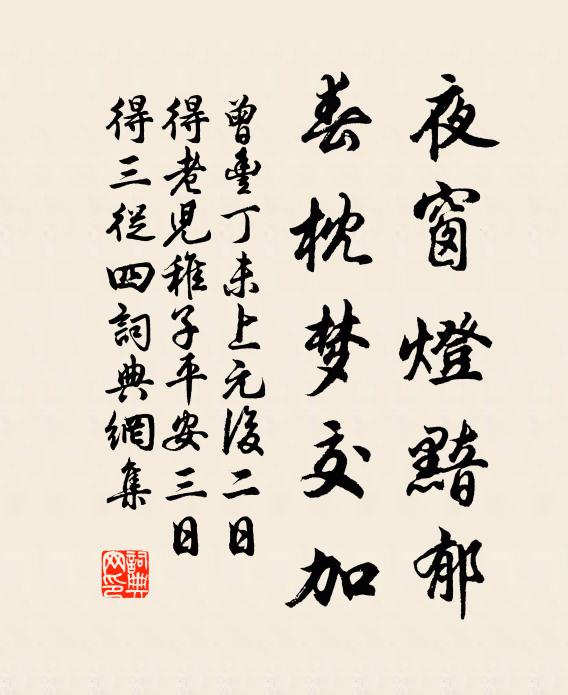 夜窗燈黯郁
春枕梦交加
曾豐丁未上元後二日
得老兒稚子平安三日
得三從四詞典網集
詞典網印